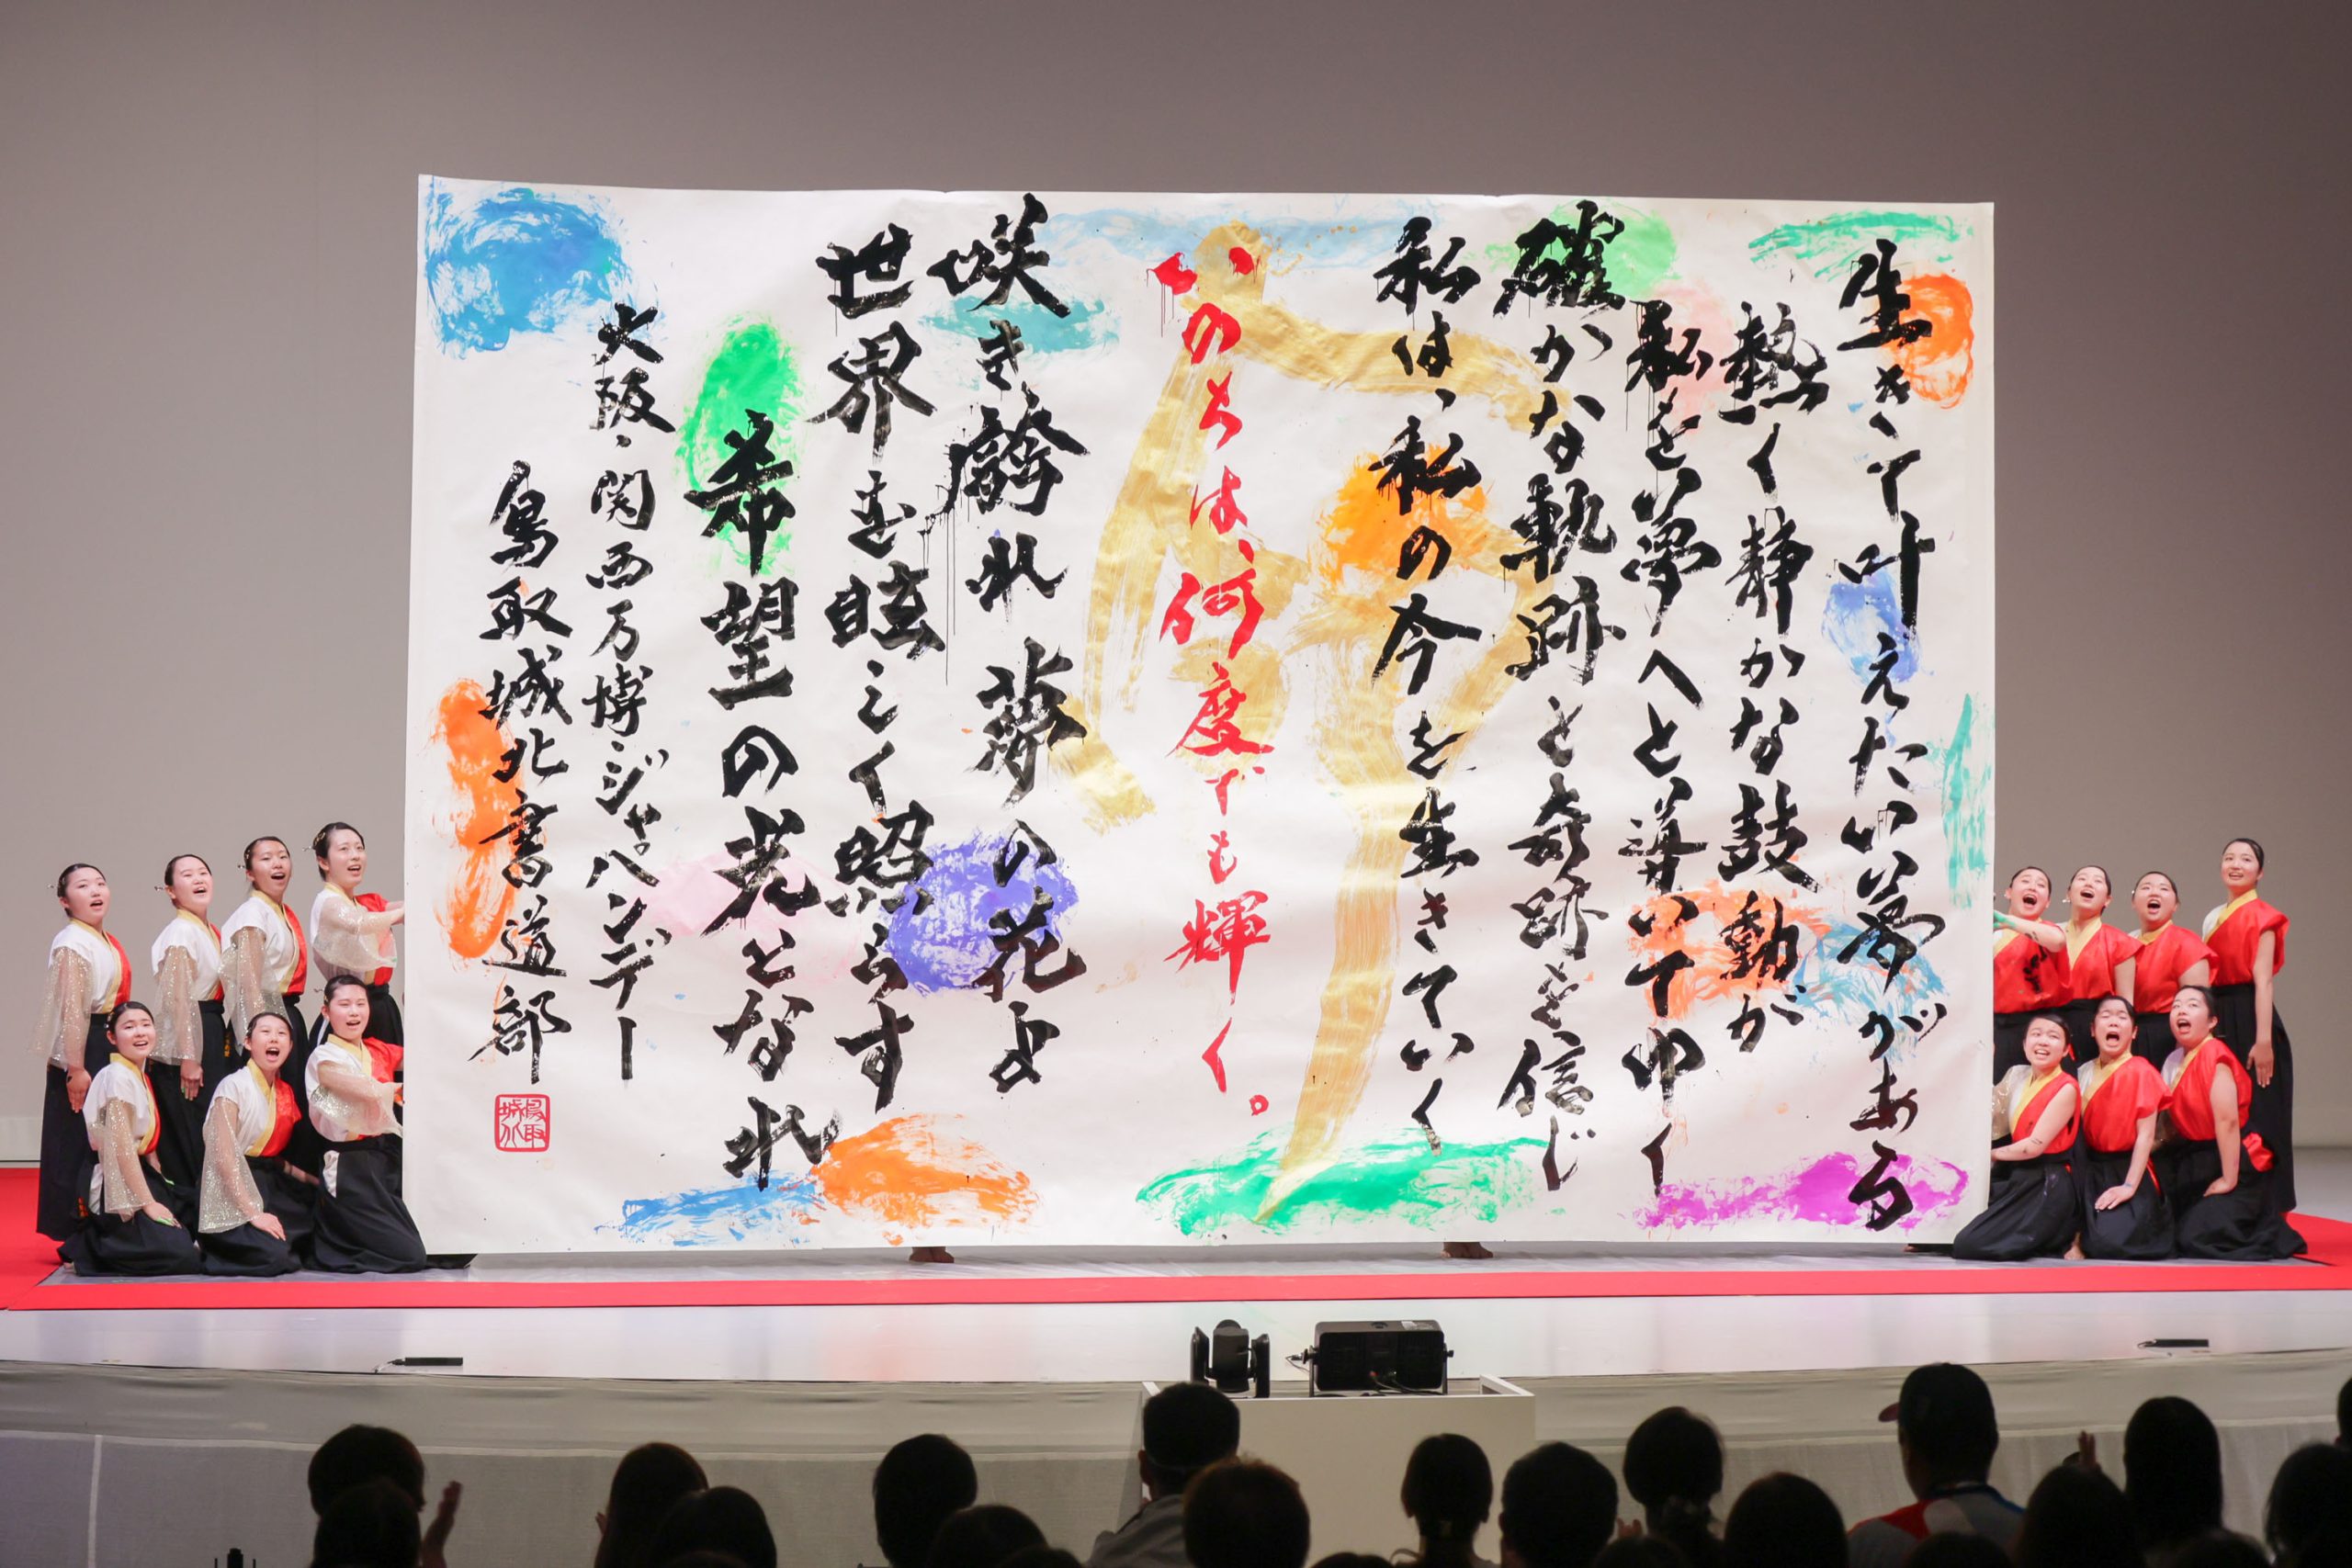 生きて叶えたい夢がある
熱く静かな鼓動が
私を夢へと導いてゆく
確かな軌跡と奇跡を信じ
私は、私の今を生きていく
いのちは、何度でも輝く。
咲き誇れ 夢の花よ
世界を眩しく照らす
希望の光となれ
大阪・関西万博ジャパンデー
鳥取城北書道部
鳥取
城北